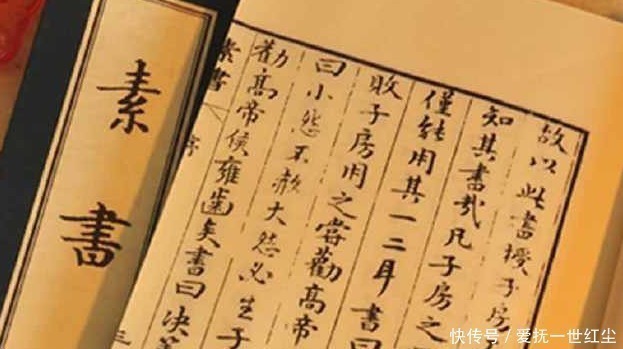 素書
故以此書授子房
知其書哉凡子房之
僅能用其一二耳書曰
敗子房用之嘗勸高帝
曰小怨不赦大怨必生子
勸高帝侯雍齒矣書曰決
素書 序 三
快传号/爱抚一世红尘